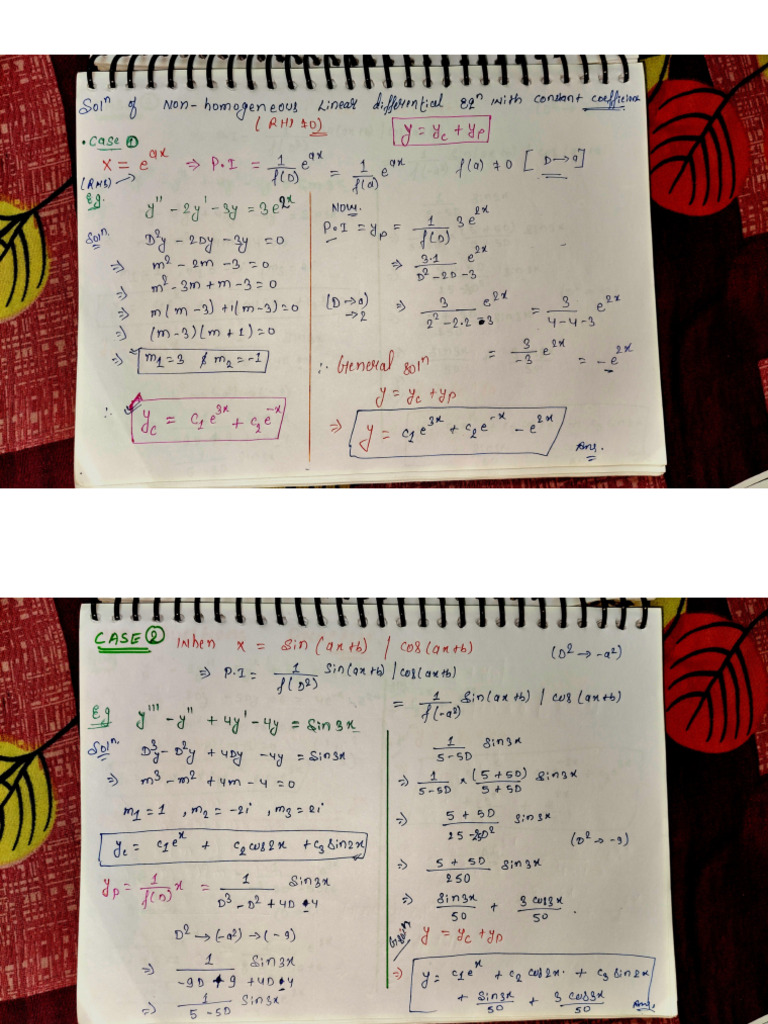 Solⁿ of Non-homogeneous Linear differential Eqⁿ with constant coefficient
(RHS ≠0)
y = y_c + y_p
• Case ①
X = e^{ax} ⇒ P.I = 1/f(D) e^{ax} = 1/f(a) e^{ax} f(a) ≠ 0 [D→a]
(RHS)
Eg. y'' - 2y' - 3y = 3e^{2x}
Solⁿ. D²y - 2Dy - 3y = 0
⇒ m² - 2m - 3 = 0
⇒ m² - 3m + m - 3 = 0
⇒ m(m-3) + 1(m-3) = 0
⇒ (m-3)(m+1) = 0
⇒ m₁ = 3 & m₂ = -1
∴ y_c = c₁e^{3x} + c₂e^{-x}
Now.
P.I = y_p = 1/f(D) 3e^{2x}
⇒ 3.1/D² - 2D - 3 e^{2x}
(D→a)
→2
⇒ 3/2² - 2.2 - 3 e^{2x} = 3/4-4-3 e^{2x}
= 3/-3 e^{2x} = -e^{2x}
∴ General solⁿ
y = y_c + y_p
⇒ y = c₁e^{3x} + c₂e^{-x} - e^{2x}
Ans.
CASE ② When x = sin(ax+b) | cos(ax+b)
(D² → -a²)
⇒ P.I = 1/f(D²) sin(ax+b) | cos(ax+b)
= 1/f(-a²) sin(ax+b) | cos(ax+b)
Eg y''' - y'' + 4y' - 4y = sin3x
Solⁿ. D³y - D²y + 4Dy - 4y = sin3x
⇒ m³ - m² + 4m - 4 = 0
m₁ = 1, m₂ = -2i, m₃ = 2i
y_c = c₁e^x + c₂cos2x + c₃sin2x
y_p = 1/f(D) x = 1/D³ - D² + 4D - 4 sin3x
D² → (-a²) → (-9)
⇒ 1/-9D + 9 + 4D - 4 sin3x
⇒ 1/5-5D sin3x
1/5-5D sin3x
⇒ 1/5-5D × (5+5D)/5+5D sin3x
⇒ 5+5D/25-25D² sin3x
(D² → -9)
⇒ 5+5D/250 sin3x
⇒ sin3x/50 + 3cos3x/50.
y = y_c + y_p
⇒ y = c₁e^x + c₂cos2x. + c₃sin2x
+ sin3x/50 + 3cos3x/50
Ans.